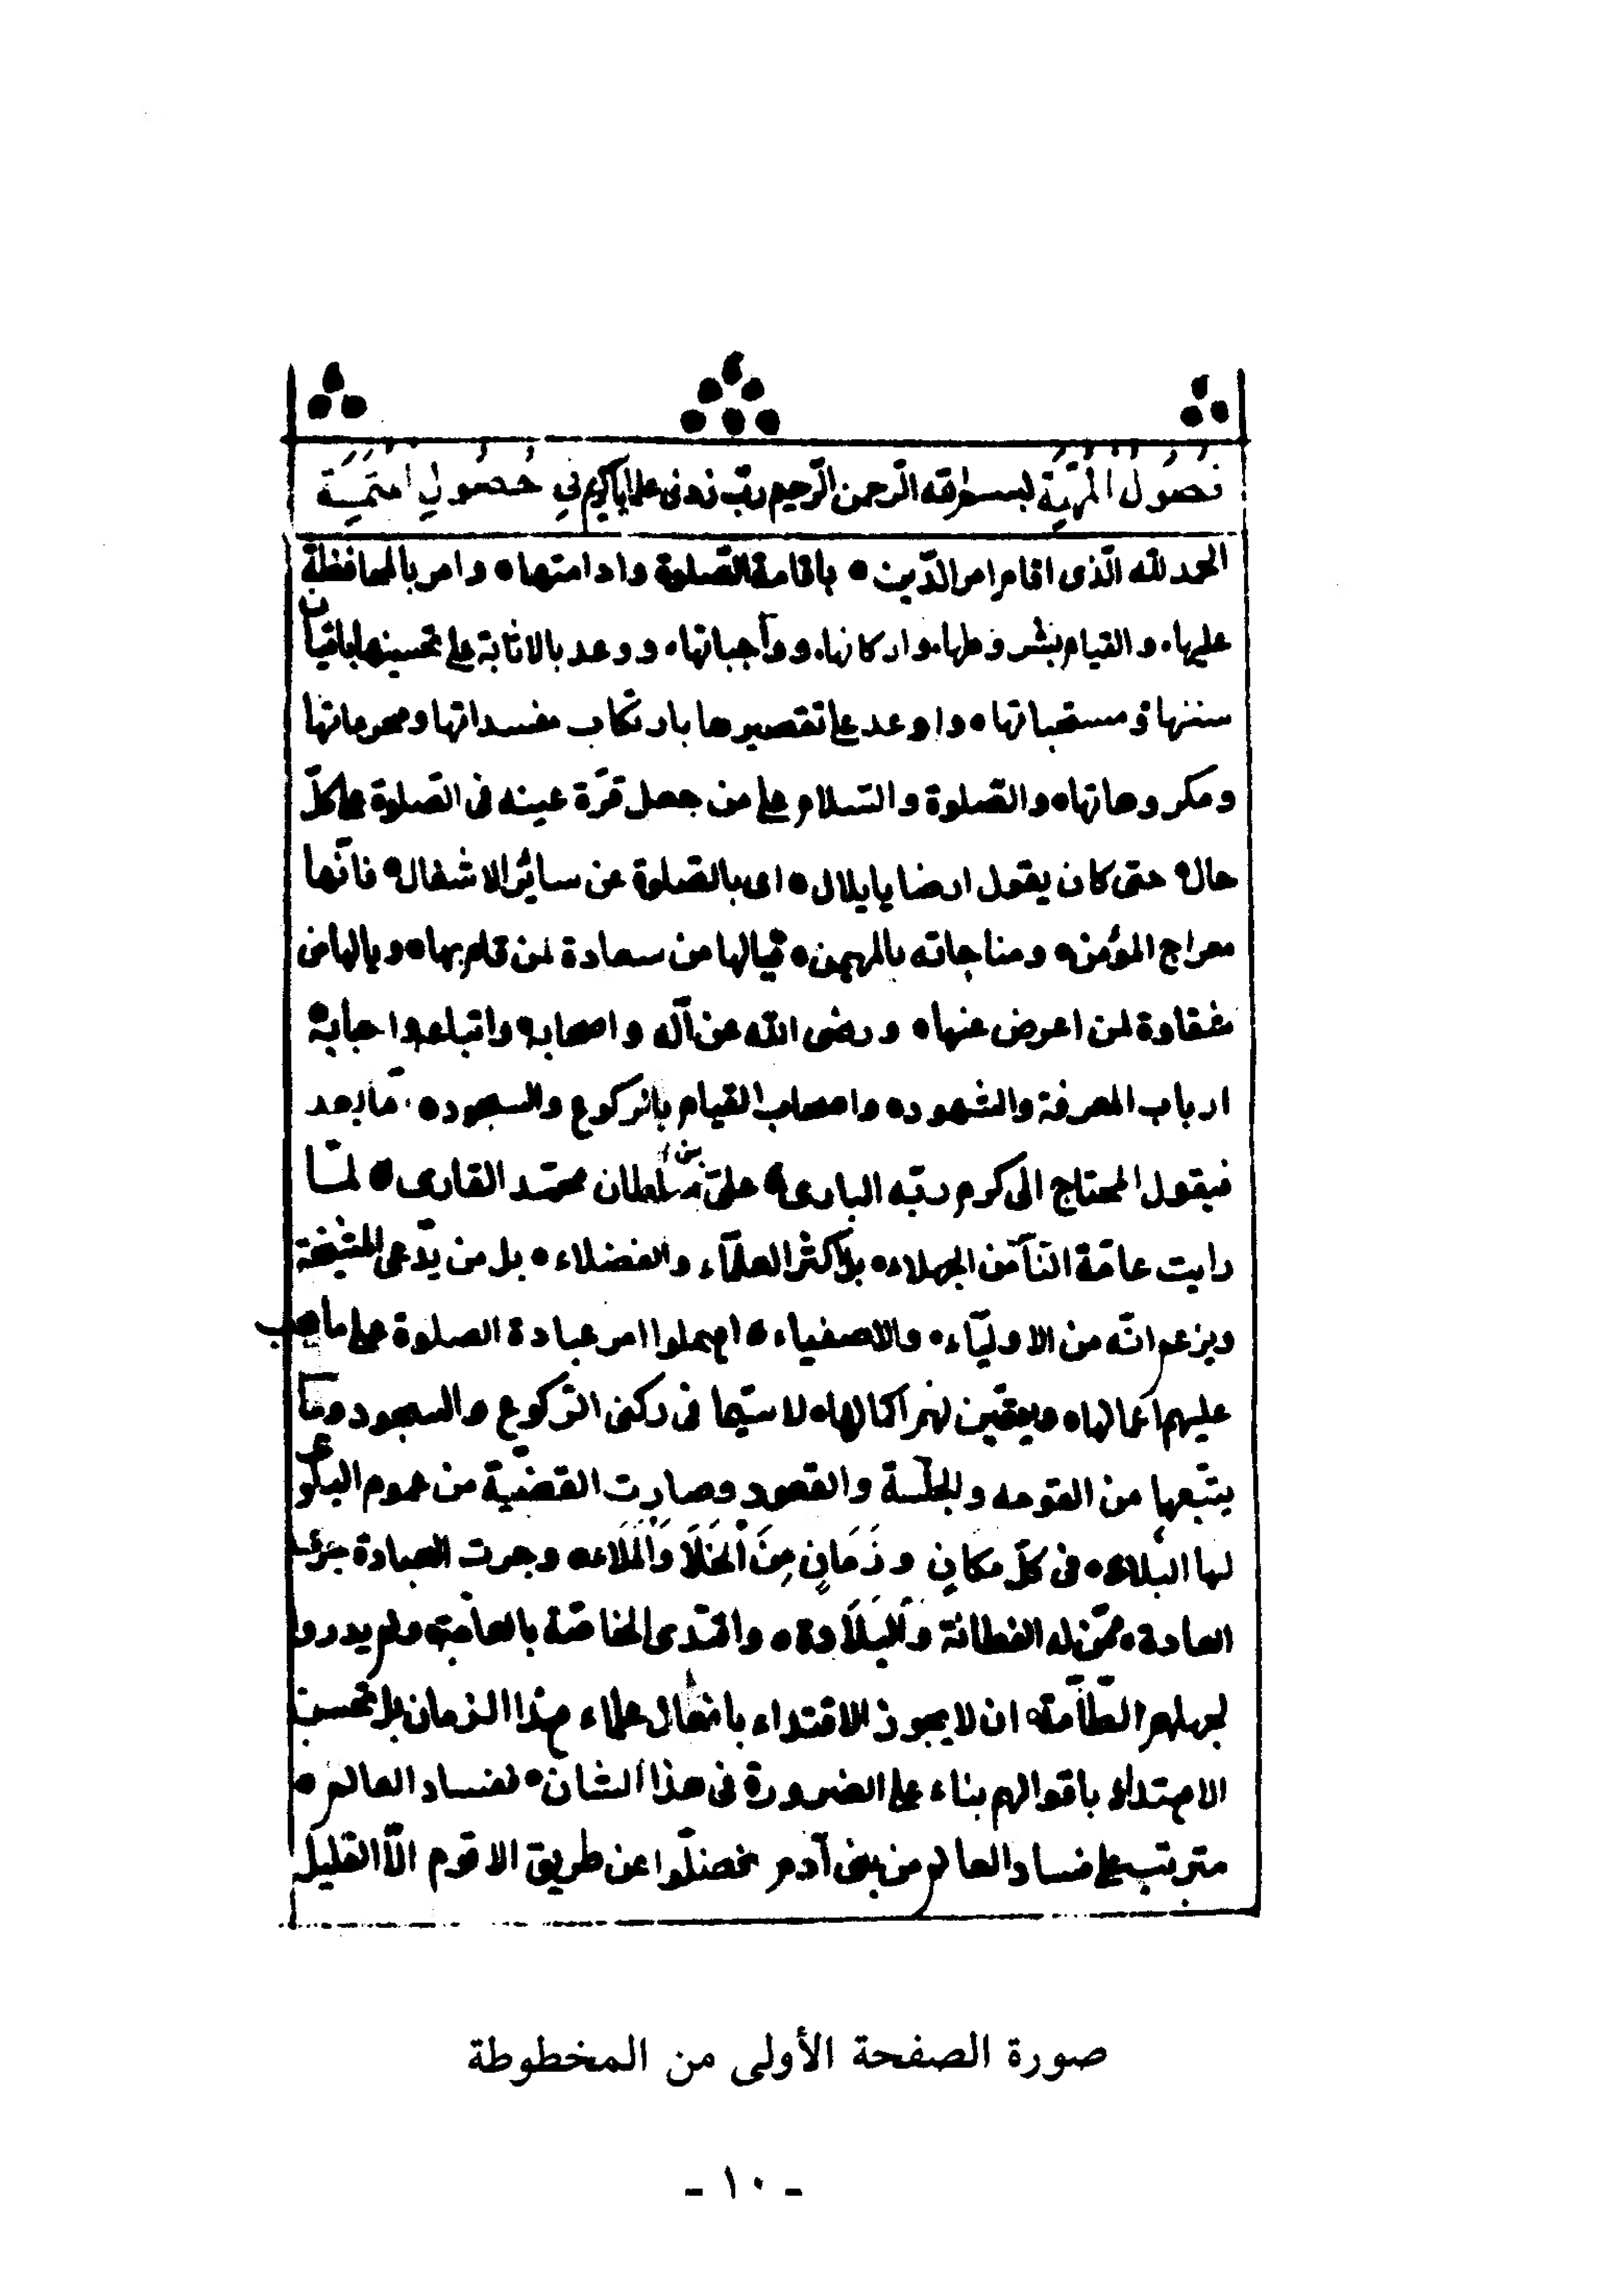 فصول المهمة بسم الله الرحمن الرحيم رب زدنى علما يا كريم في حصول المتمة
الحمد لله الّذى اقام امر الدّين ه باقامة الصّلوة وادامتها ه وامر بالمحافظة
عليها ه والقيام بشروطها ه واركانها ه وواجباتها ه ووعد بالاثابة على تحسينها باتيان
سننها ومستحباتها ه واوعد على تقصيرها بارتكاب مفسداتها ومحرماتها
ومكروهاتها ه والصّلوة والسّلام على من جعل قرّة عينه فى الصّلوة على كلّ
حال ه حتى كان يقول ارحنا يا بلال ه اى بالصّلوة عن سائر الاشغال ه فانّها
معراج المؤمن ه ومناجاته بالمهيمن ه فيالها من سعادة لمن قام بها ه ويالها من
شقاوة لمن اعرض عنها ه ورضى الله عن آله واصحابه واتباعه واحبابه
ارباب المعرفة والشهود ه واصحاب القيام بالركوع والسجود ه امّا بعد
فيقول المحتاج الى كرم ربّه البارى ه علىّ بن سلطان محمّد القارى ه لمّا
رايت عامّة النّاس من الجهلاء ه بل اكثر العلمآء والفضلاء ه بل من يدّعى المشيخة
ويزعم انّه من الاوليآء ه والاصفياء ه اهملوا امر عبادة الصلوة على ما يجب
عليهم اعمالها ه ويتعيّن لهم اكمالها ه لا سيّما فى ركنى الرّكوع والسجود وما
يتبعها من القومه والجلسة والقعود وصارت القضيّة من عموم البلوى
لها البلاء ه فى كلّ مكانٍ وزَمَانٍ مِنَ الْخَلَا وَالْمَلَاء ه وجرت العبادة جرى
العادة ه ممّن له الفطانة وَالْبَلَادة ه واقتدى الخاصّة بالعامّة ولم يدروا
لجهلهم الطّامّة ه ان لا يجوز الاقتداء بافعال علماء هذا الزمان بل تحسن
الاهتداء باقوالهم بناء على الضرورة فى هذا الشان ه ففساد العالم ه
مترتب على فساد العالم من بنى آدم فضلّوا عن طريق الاقوم الّا القليل
صورة الصفحة الأولى من المخطوطة
- ١٠ -